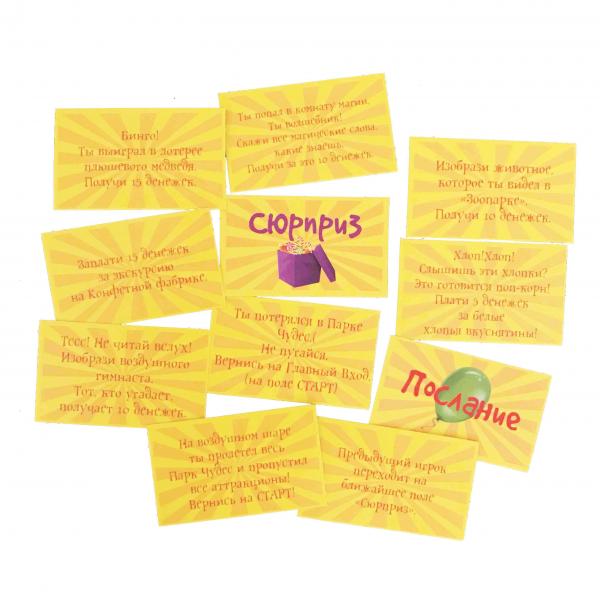 Бинго!
Ты выиграл в лотерее
плюшевого медведя.
Получи 15 денежек.
Ты попал в комнату магии.
Ты волшебник!
Скажи все магические слова,
какие знаешь.
Получи за это 10 денежек.
Изобрази животное,
которое ты видел в
«Зоопарке».
Получи 10 денежек.
Заплати 15 денежек
за экскурсию
на Конфетной фабрике.
СЮРПРИЗ
Хлоп!Хлоп!
Слышишь эти хлопки?
Это готовится поп-корн!
Плати 5 денежек
за белые
хлопья вкуснятины!
Тссс! Не читай вслух!
Изобрази воздушного
гимнаста.
Тот, кто угадает,
получает 10 денежек.
Ты потерялся в Парке
Чудес.(
Не пугайся.
Вернись на Главный Вход.
(на поле СТАРТ)
Послание
На воздушном шаре
ты пролетел весь
Парк Чудес и пропустил
все аттракционы!
Вернись на СТАРТ!
Предыдущий игрок
переходит на
ближайшее поле
«Сюрприз».